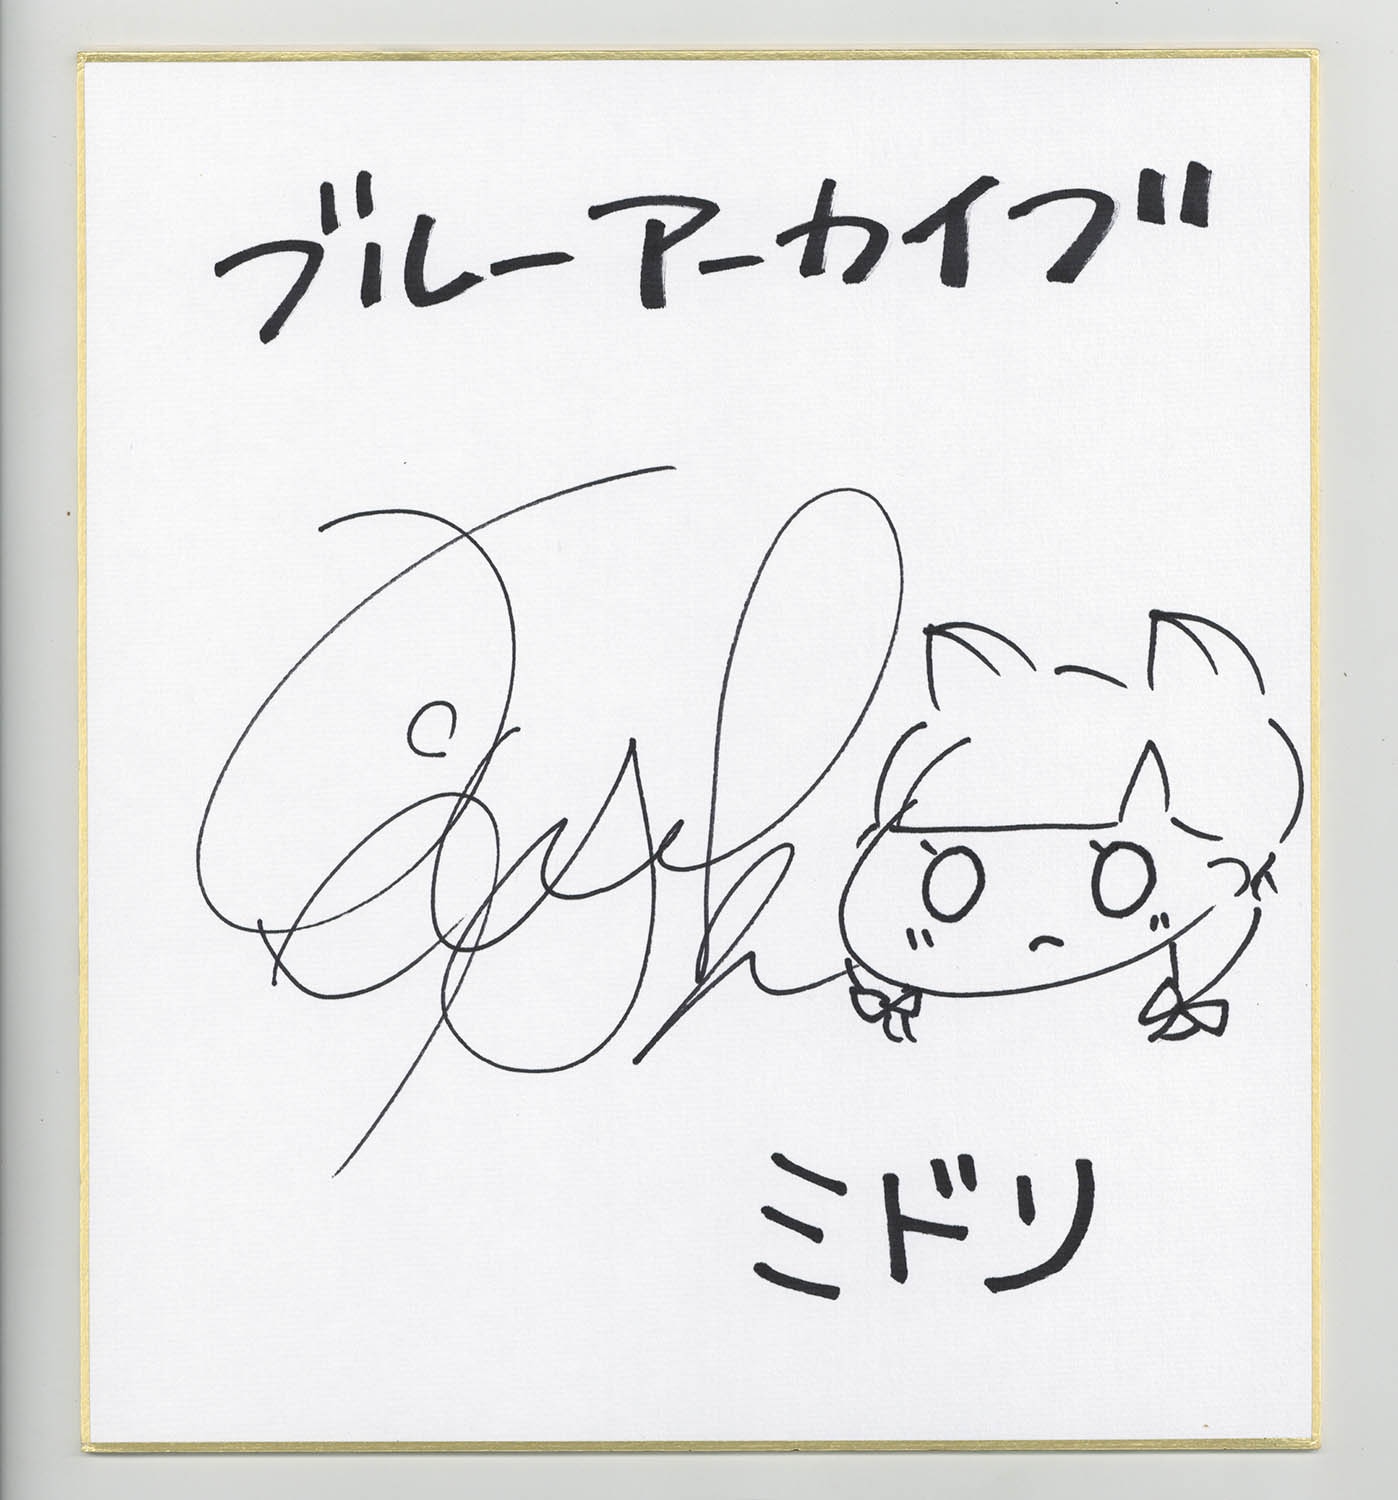 ブルーアーカイブ
ミドリ